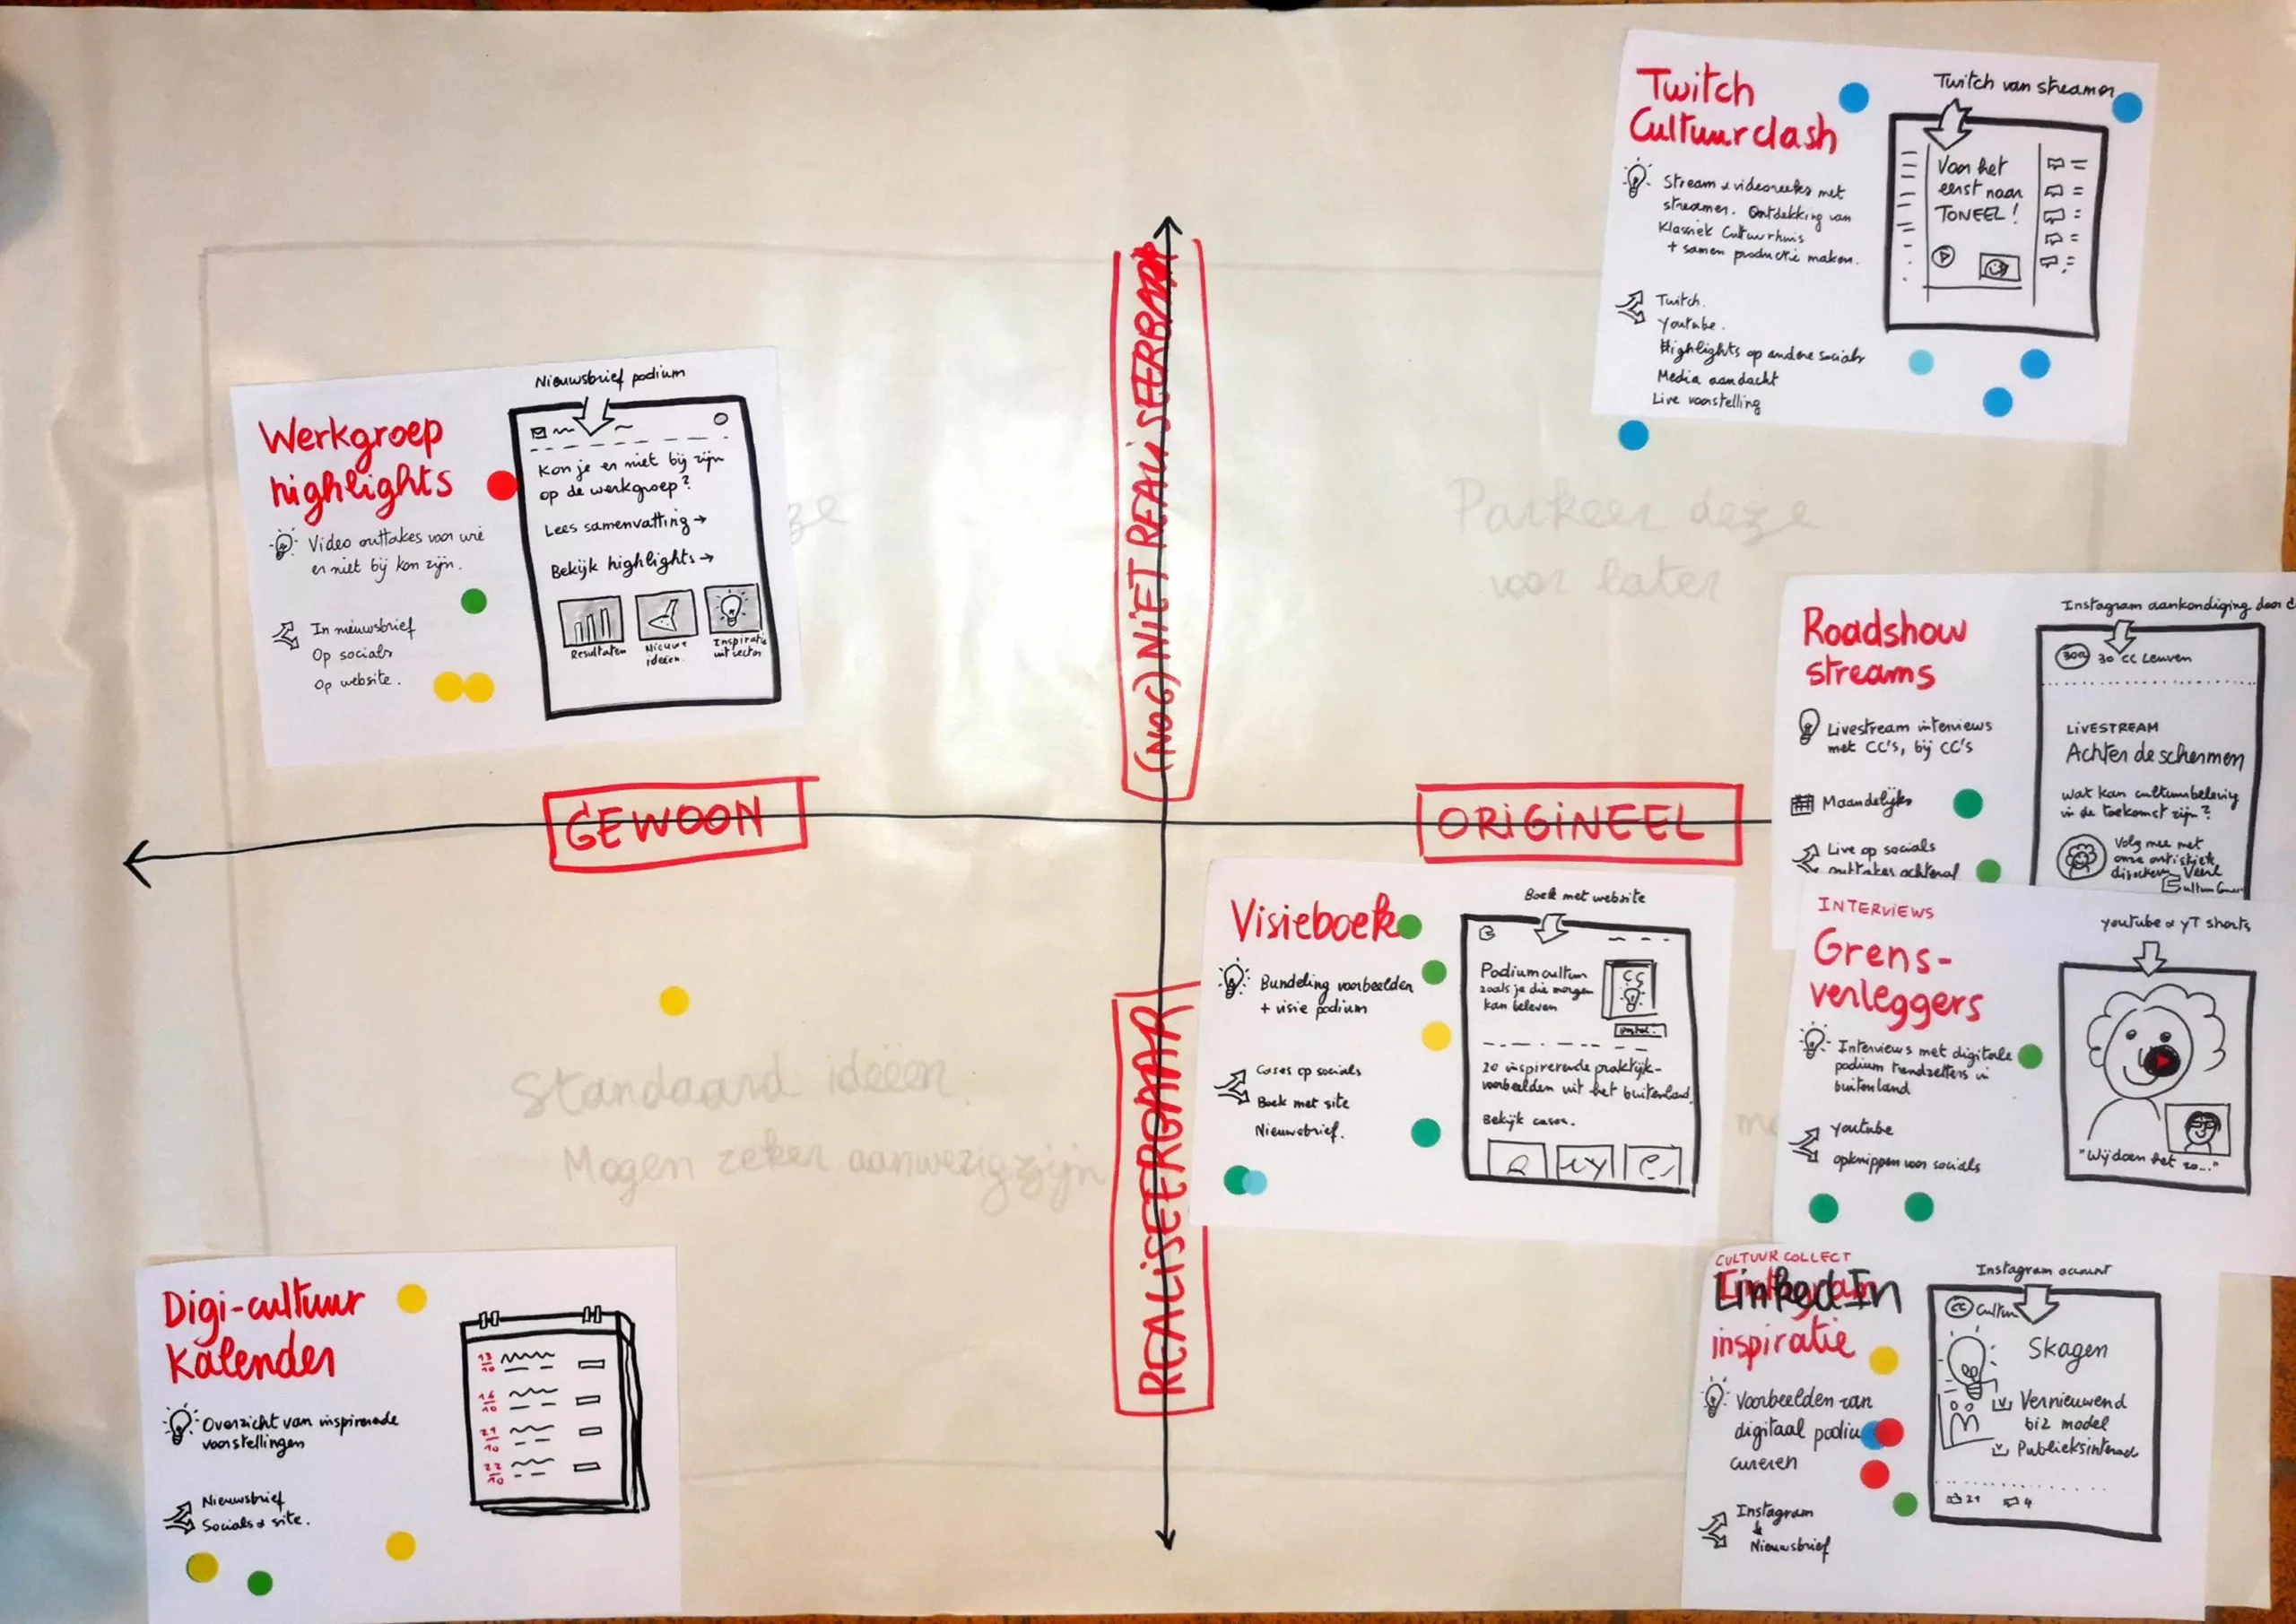 Twitch
Cultuurclash
Stream & videoreeks met
streamer. Ontdekking van
Klassiek Cultuurhuis
+ samen productie maken.
Twitch.
Youtube.
Highlights op andere socials
Media aandacht
Live voorstelling
Twitch van streamer
Voor het
eerst naar
TONEEL!
(NOG) NIET REALISEERBAAR
Werkgroep
highlights
Video outtakes voor wie
er niet bij kon zijn.
In nieuwsbrief
Op socials
Op website.
Nieuwsbrief podium
Kon je er niet bij zijn
op de werkgroep?
Lees samenvatting →
Bekijk highlights →
Resultaten
Nieuwe
ideeën.
Inspiratie
uit sector
ze
Parkeer deze
voor later
Roadshow
streams
Livestream interviews
met CC's, bij CC's
Maandelijks
Live op socials
outtakes achteraf
Instagram aankondiging door
30CC
30 CC Leuven
LIVESTREAM
Achter de schermen
wat kan cultuurbeleving
in de toekomst zijn?
Volg mee met
onze artistiek
GEWOON
ORIGINEEL
Visieboek
Bundeling voorbeelden
+ visie podium
Cases op socials
Boek met site
Nieuwsbrief.
Boek met website
Podiumcultuur
zoals je die morgen
kan beleven
CC
20 inspirerende praktijk-
voorbeelden uit het buitenland.
Bekijk cases.
INTERVIEWS
Grens-
verleggers
Interviews met digitale
podium trendzetters in
buitenland
youtube
opknippen voor socials
youtube & YT shorts
"Wij doen het zo..."
REALISEERBAAR
Standaard ideeën.
Mogen zeker aanwezig zijn
Digi-cultuur
Kalender
Overzicht van inspirerende
voorstellingen
Nieuwsbrief
Socials & site.
13/10
16/10
21/10
22/10
CULTUUR COLLECT
LinkedIn
inspiratie
Voorbeelden van
digitaal podium
cureren
Instagram
↓
Nieuwsbrief
Instagram account
CC
Skagen
Vernieuwend
biz model
Publieksinterac
21 4